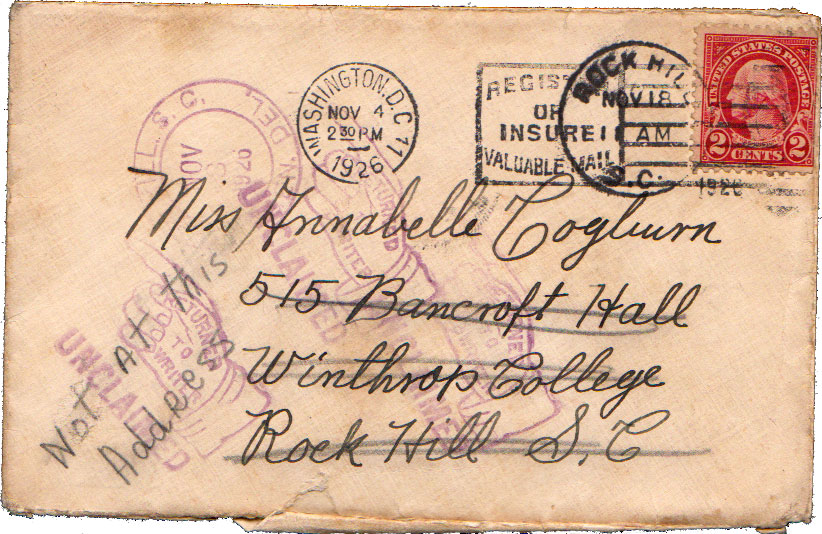 WASHINGTON, D.C. 11
NOV 4
2 30 PM
1926
REGIST
OR
INSURE
VALUABLE MAIL
ROCK HILL
NOV 18
AM
S.C.
1926
UNITED STATES POSTAGE
2 CENTS 2
S. C.
DEL.
NOV
UNCLAIMED
RETURNED
Miss Annabelle Cogburn
515 Bancroft Hall
Winthrop College
Rock Hill S. C
Not At this
Address
RETURNED
TO
WRITER
UNCLAIMED